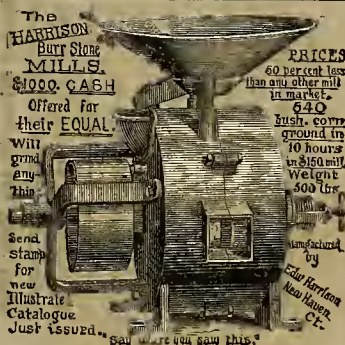 The
HARRISON
Burr Stone
MILLS.
$1000. CASH
Offered for
their EQUAL.
Will
grind
any-
thing.
Send
stamp
for
new
Illustrate
Catalogue
Just issued.
PRICES
60 per cent less
than any other mill
in market.
640
bush. corn
ground in
10 hours
in $150 mill
Weight
500 lbs
Manufactured
by
Edw Harrison
New Haven
Ct.
"Say where you saw this."